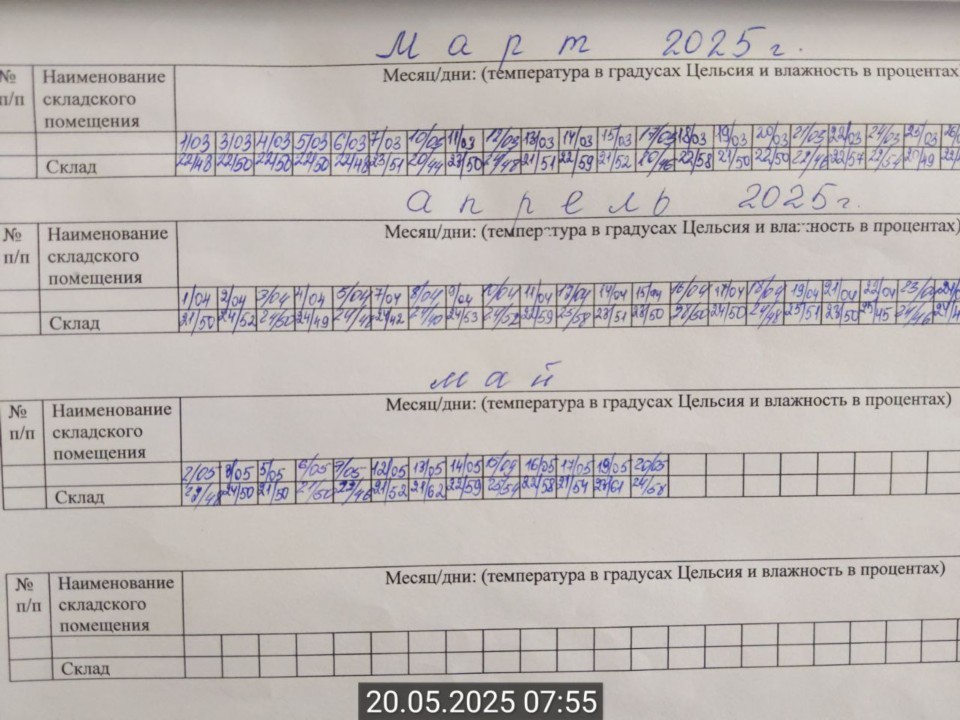 Март 2025г.
№ п/п Наименование складского помещения Месяц/дни: (температура в градусах Цельсия и влажность в процентах)
1/03 3/03 4/03 5/03 6/03 7/03 10/03 11/03 12/03 13/03 14/03 15/03 17/03 18/03 19/03 20/03 21/03 22/03 24/03 25/03
Склад 22/48 22/50 22/50 22/50 22/48 23/51 20/44 23/50 24/48 21/51 22/59 21/52 20/46 22/58 21/50 22/50 22/46 22/57 22/54 20/49
апрель 2025г.
№ п/п Наименование складского помещения Месяц/дни: (температура в градусах Цельсия и влажность в процентах)
1/04 2/04 3/04 4/04 5/04 7/04 8/04 9/04 10/04 11/04 12/04 14/04 15/04 16/04 17/04 18/04 19/04 21/04 22/04 23/04
Склад 21/50 24/52 24/50 24/49 24/48 24/42 24/40 24/53 24/52 22/59 25/58 23/51 23/50 22/50 24/50 24/48 25/51 23/50 23/45 24/46
май
№ п/п Наименование складского помещения Месяц/дни: (температура в градусах Цельсия и влажность в процентах)
2/05 3/05 5/05 6/05 7/05 12/05 13/05 14/05 15/05 16/05 17/05 19/05 20/05
Склад 22/48 24/50 21/50 21/50 22/46 21/52 21/62 22/59 25/54 22/58 21/54 24/61 24/58
№ п/п Наименование складского помещения Месяц/дни: (температура в градусах Цельсия и влажность в процентах)
Склад
20.05.2025 07:55